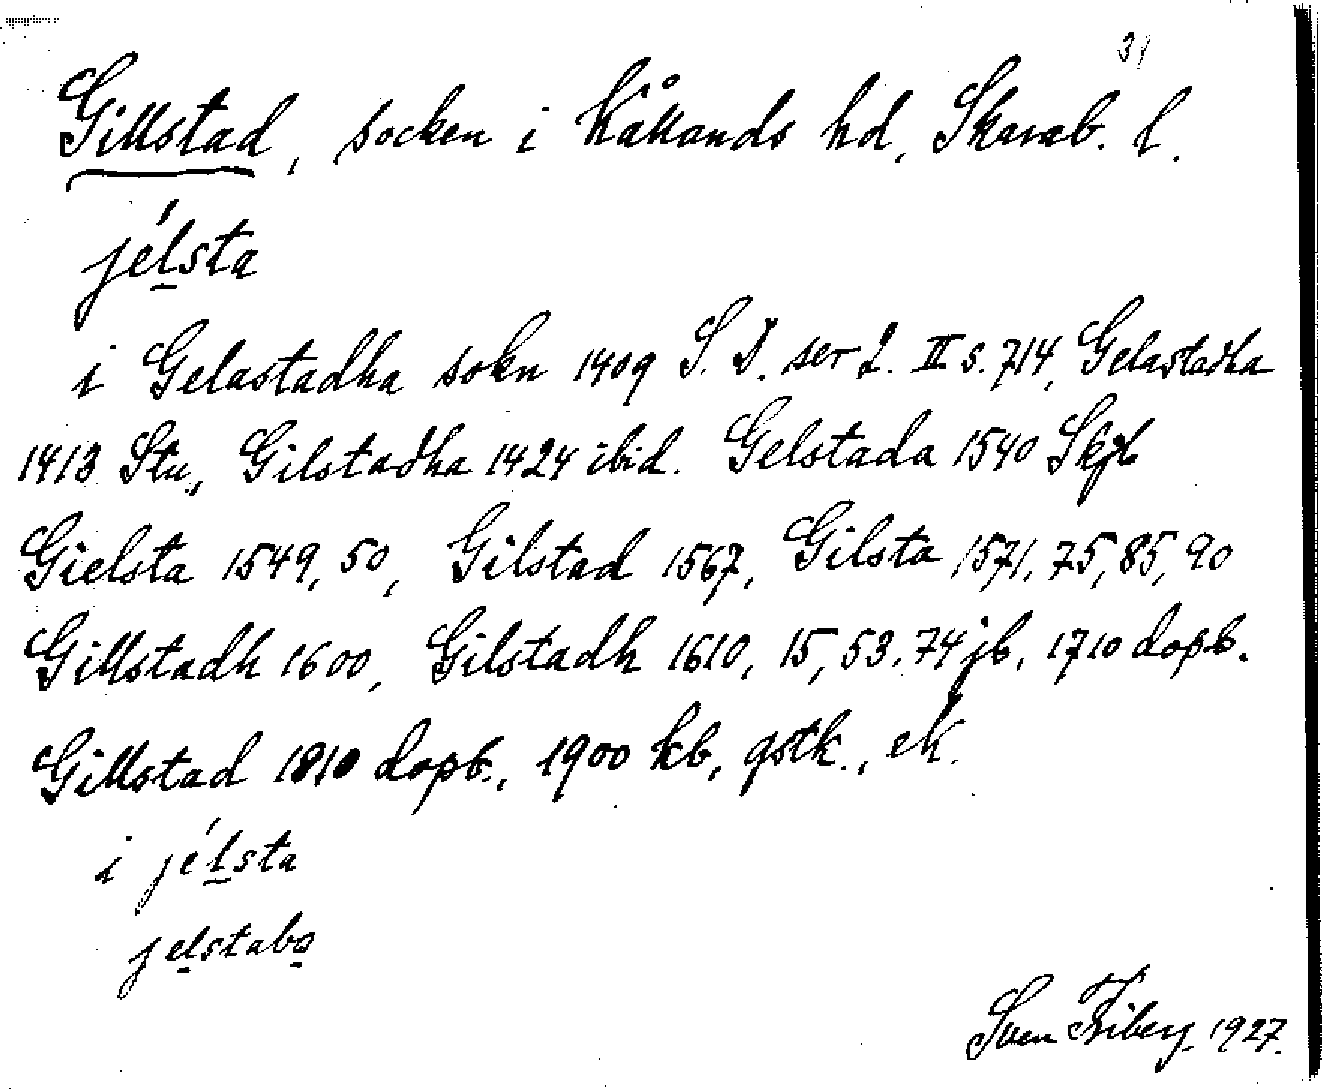 31
Gillstad, socken i Kållands hd, Skarab. l.
jélsta
i Gelastadha sokn 1409 S. D. ser 2. II s. 714, Gelastadha
1413 Stu., Gilstadha 1424 ibid. Gelstada 1540 Skjb
Gielsta 1549, 50, Gilstad 1567, Gilsta 1571, 75, 85, 90
Gillstadh 1600, Gilstadh 1610, 15, 53, 74 jb, 1710 dopb.
Gillstad 1810 dopb., 1900 kb, gstk., ek.
i jélsta
jelstabo
Sven Friberg. 1927.